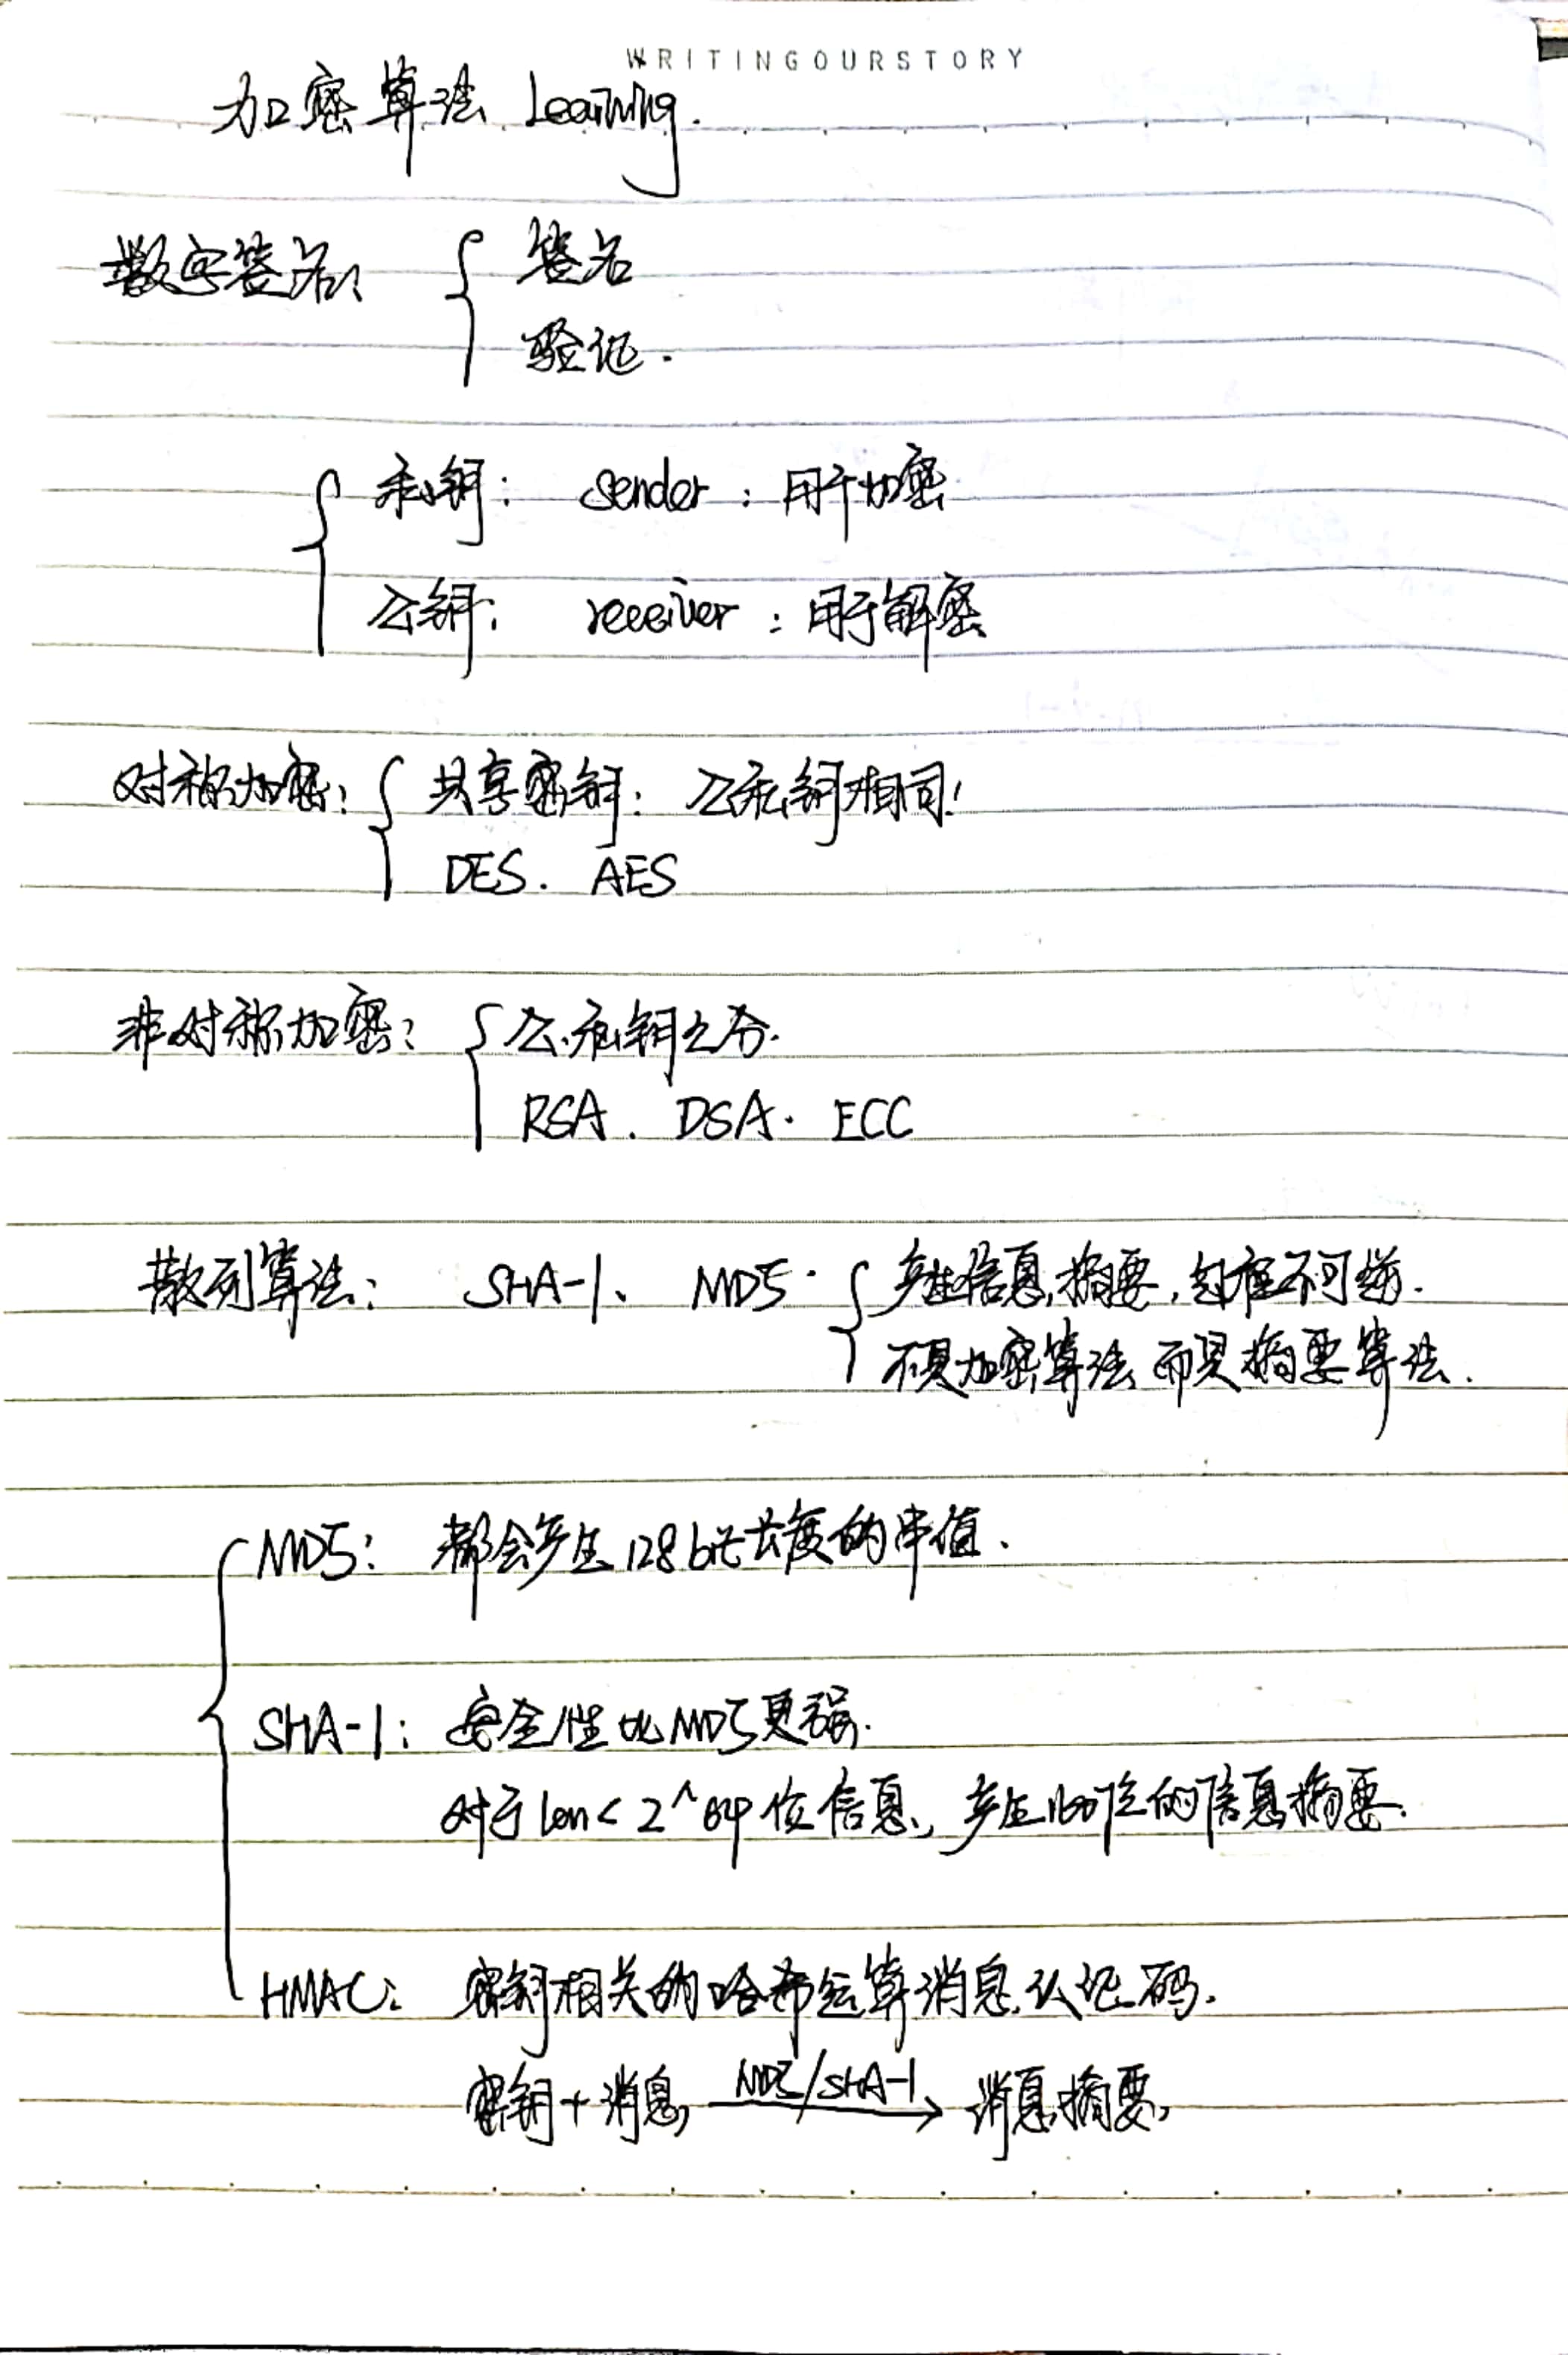 WRITINGOURSTORY
加密算法 Learning.
数字签名: 签名
验证.
私钥: sender : 用于加密
公钥: receiver : 用于解密
对称加密: 共享密钥: 公私钥相同!
DES. AES
非对称加密: 公.私钥之分.
RSA. DSA. ECC
散列算法: SHA-1、 MD5. 产生信息摘要,过程不可逆.
不是加密算法而是摘要算法.
MD5: 都会产生128bit长度的串值.
SHA-1: 安全性比MD5更强.
对于len<2^64位信息, 产生160位的信息摘要.
HMAC: 密钥相关的哈希运算消息认证码.
密钥+消息 MD5/SHA-1 → 消息摘要,